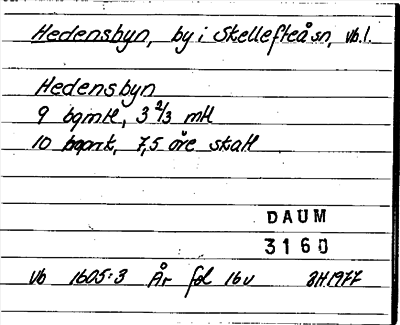 Hedensbyn, by i Skellefteå sn, Vb.l.
Hedensbyn
9 bgmtl, 3 2/3 mtl
10 bgprk, 7,5 öre skatt
DAUM
3160
Vb 1605:3 År fol 16v BH.1977